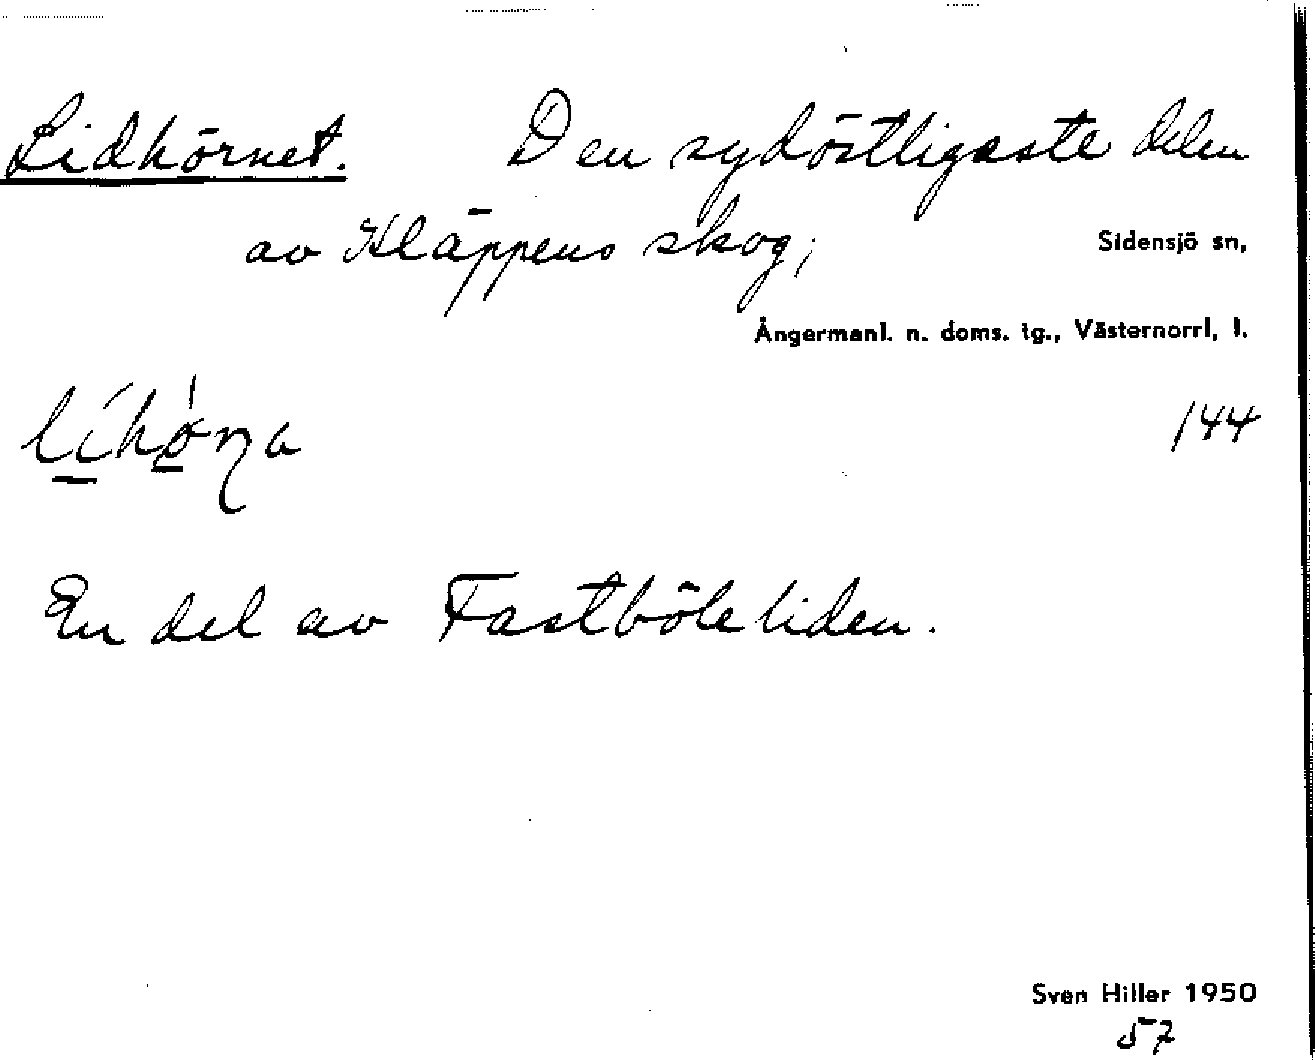 Lidhörnet. Den sydöstligaste delen
av Kläppens skog; Sidensjö sn,
Ångermanl. n. doms. tg., Västernorrl. l.
144
En del av Fastböleliden.
Sven Hiller 1950
57